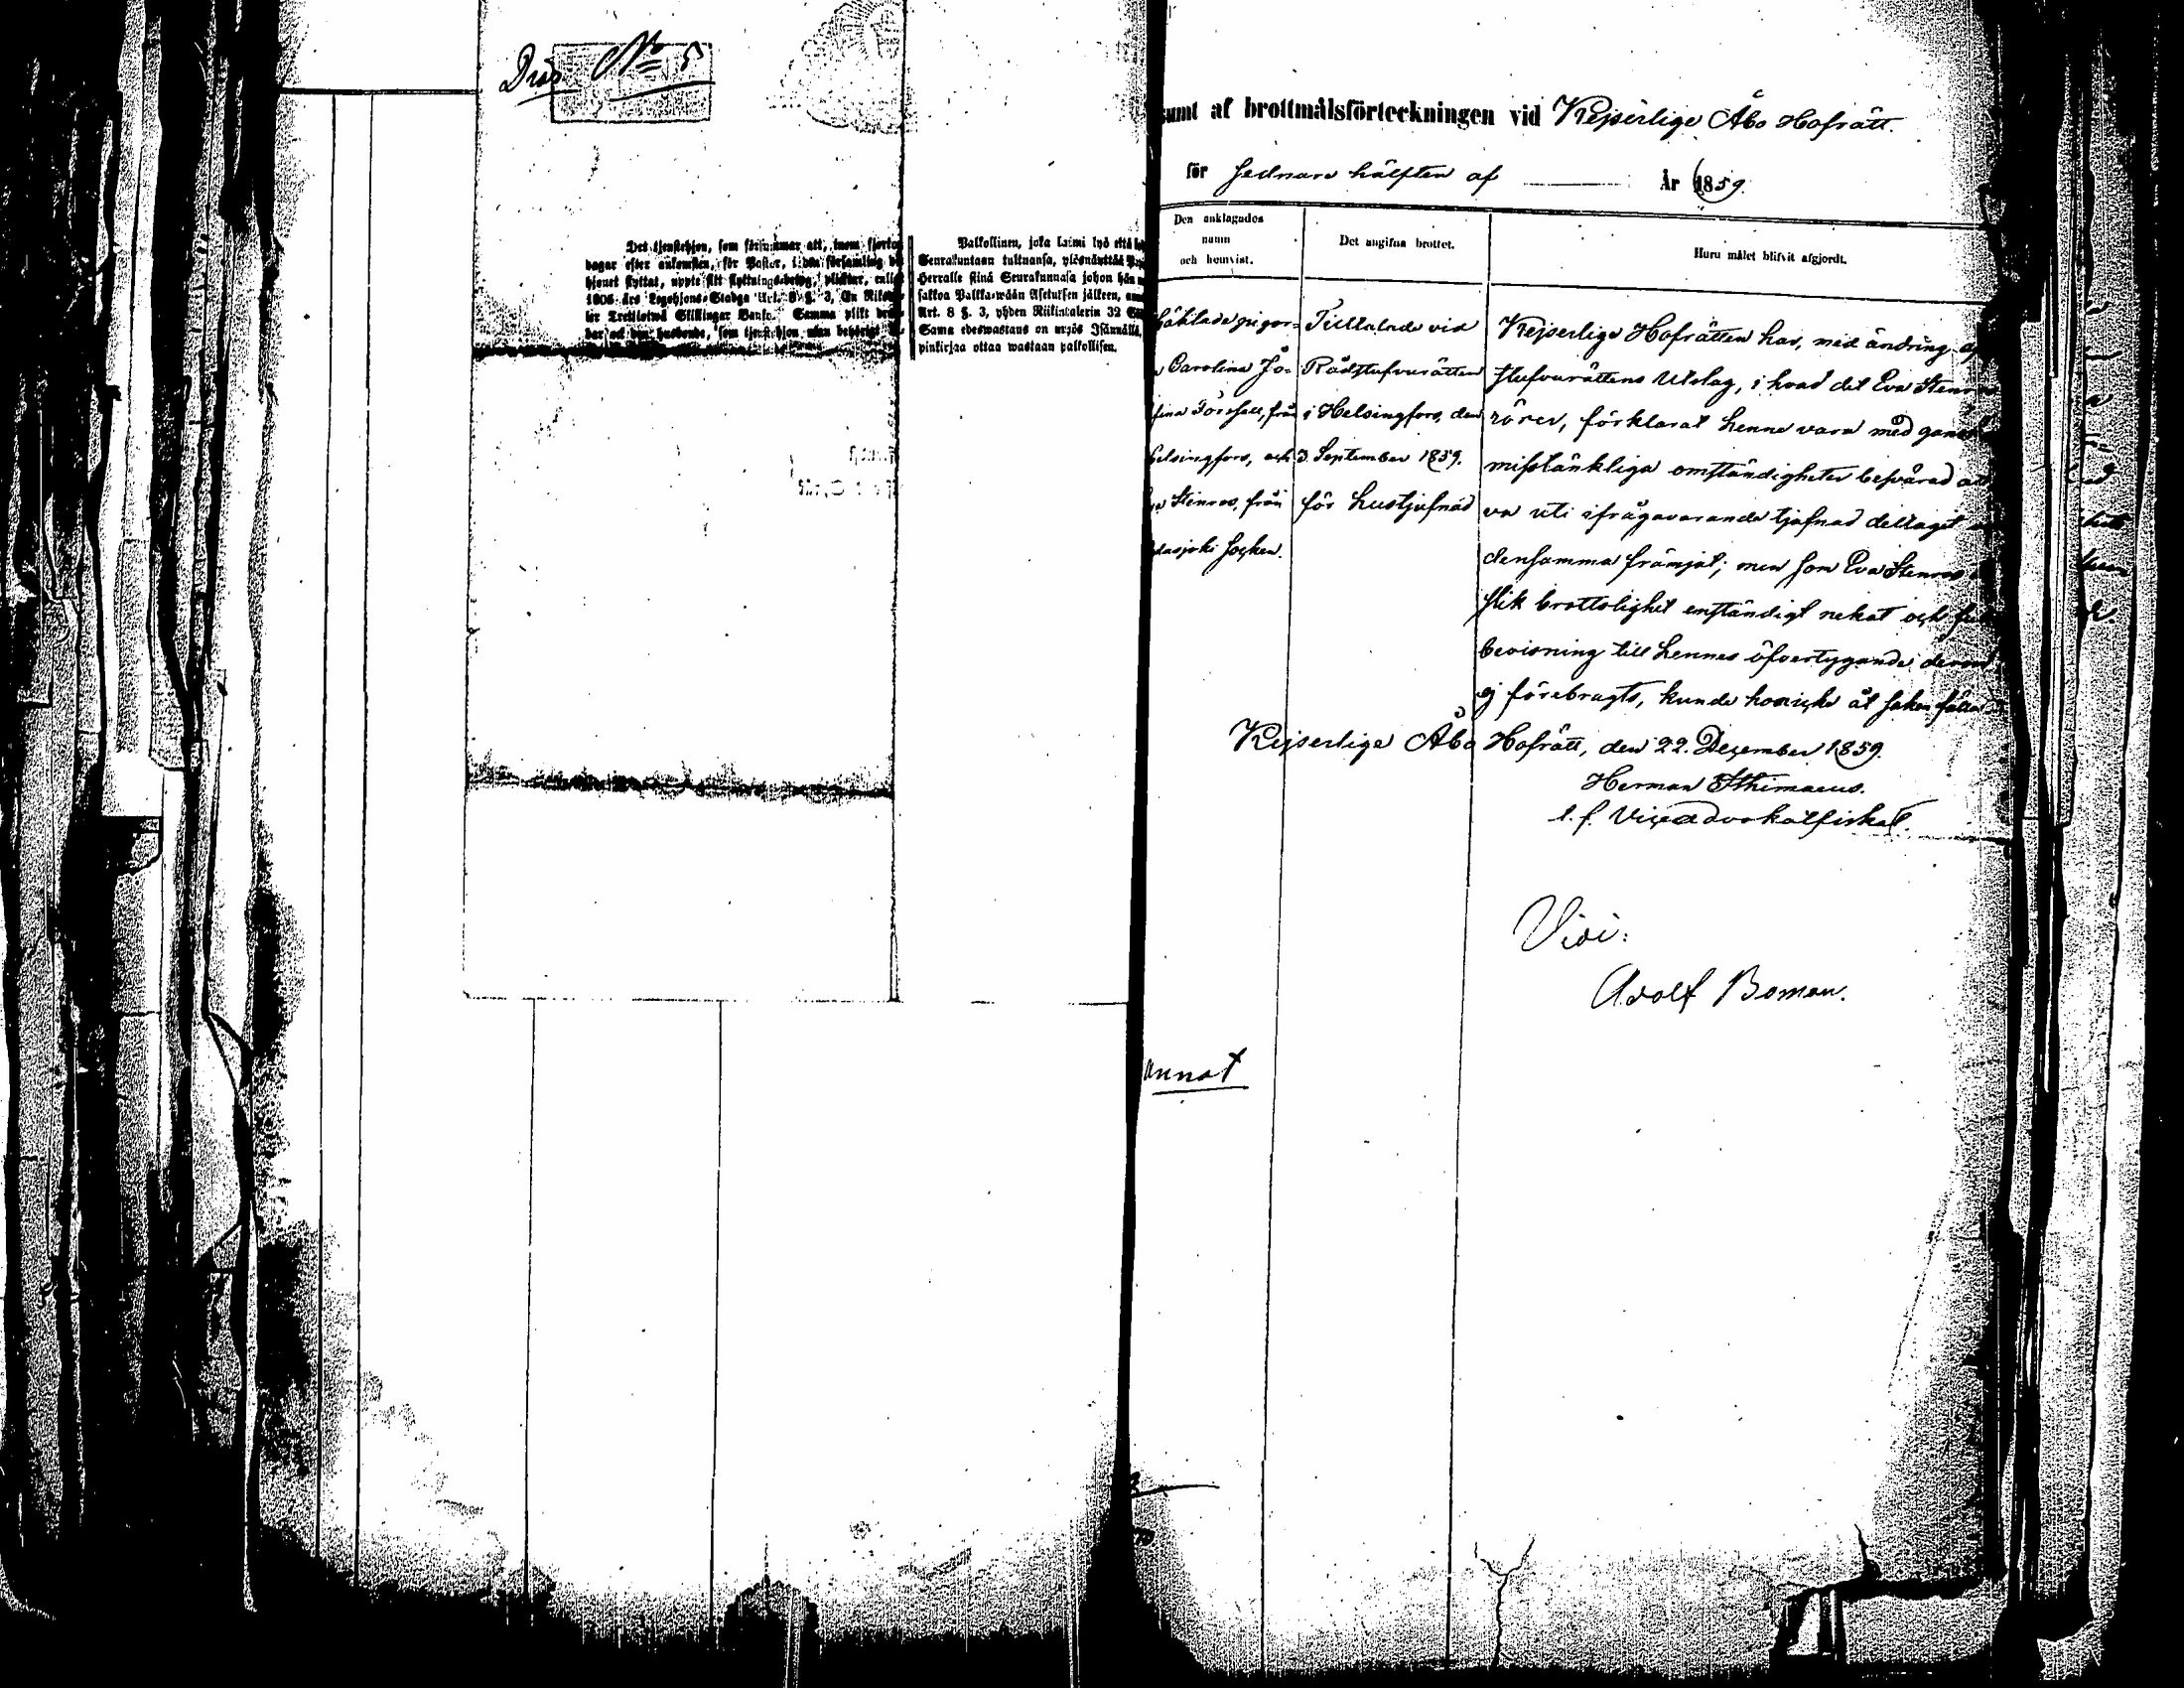 Dräs № 5
Det tjenstehjon, som försummar att, inom fjorton
dagar efter ankomsten, för Pastor, i den församling
hjonet flyttat, uppte sitt flyttningsbetyg, pliktar, enligt
1805 års Legohjons-Stadga Art. 8 §. 3, En Riksdaler
Trettiotwå Skillingar Banko. Samma plikt
Palkollinen, joka laimi lyö että
Seurakuntaan tultuansa, ylösnäyttää
Herralle siinä Seurakunnasa johon hän
sakkoa Palkka-wään Asetuksen jälkeen,
Art. 8 §. 3, yhden Riikintalerin 32
Sama edeswastaus on myös Isännällä,
pinkirjaa ottaa wastaan palkollisen.
af brottmålsförteckningen vid Kejserlige Åbo Hofrätt.
för sednare hälften af År 1859.
Den anklagades
namn
och hemvist.
Det angifna brottet.
Huru målet blifvit afgjordt.
häktade pigor-
Carolina Jo-
från
Helsingfors, och
Stenros, från
socken.
Tilltalade vid
Rådstufvurätten
i Helsingfors, den
3. September 1859.
för hustjufnad
Kejserlige Hofrätten har, med ändring af
stufvurättens Utslag, i hvad det Eva Stenros
rörer, förklarat henne vara med ganska
misstänkliga omständigheter besvärad att
va uti ifrågavarande tjufnad deltagit
densamma främjat; men som Eva Stenros
slik brottslighet enständigt nekat och full
bevisning till hennes öfvertygande derom
ej förebragts, kunde hon icke åt saken fällas
Kejserlige Åbo Hofrätt, den 22. December 1859.
Herman Sthimaeus.
t. f. Viceadvokatfiskal.
Vidi:
Adolf Boman.
annat